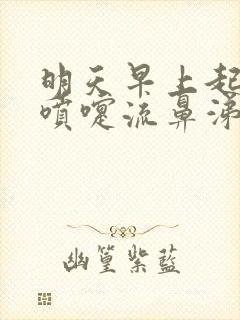 明天早上起
喷嚏流鼻涕
幽篁紫蓝